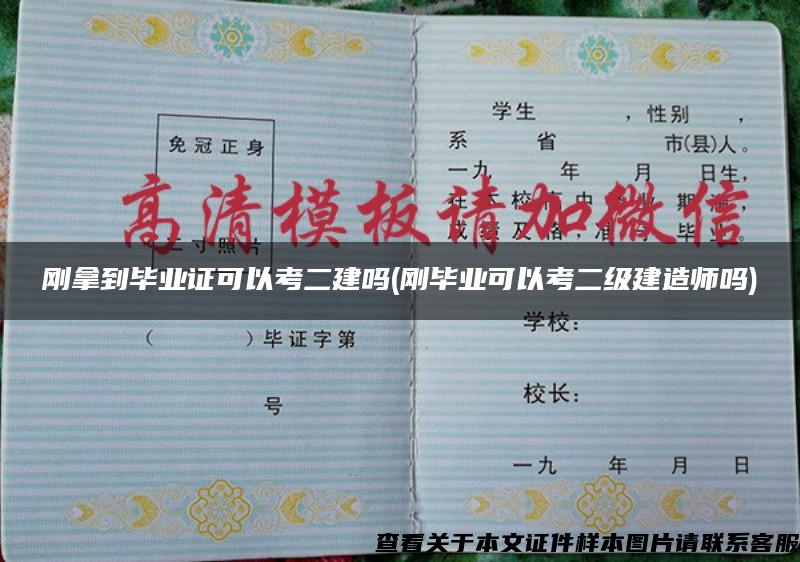 免冠正身
二寸照片
( )毕证字第
号
学生 ,性别 ,
系 省 市(县)人。
一九 年 月 日生,
学校:
校长:
一九 年 月 日
高清模板请加微信
刚拿到毕业证可以考二建吗(刚毕业可以考二级建造师吗)
查看关于本文证件样本图片请联系客服